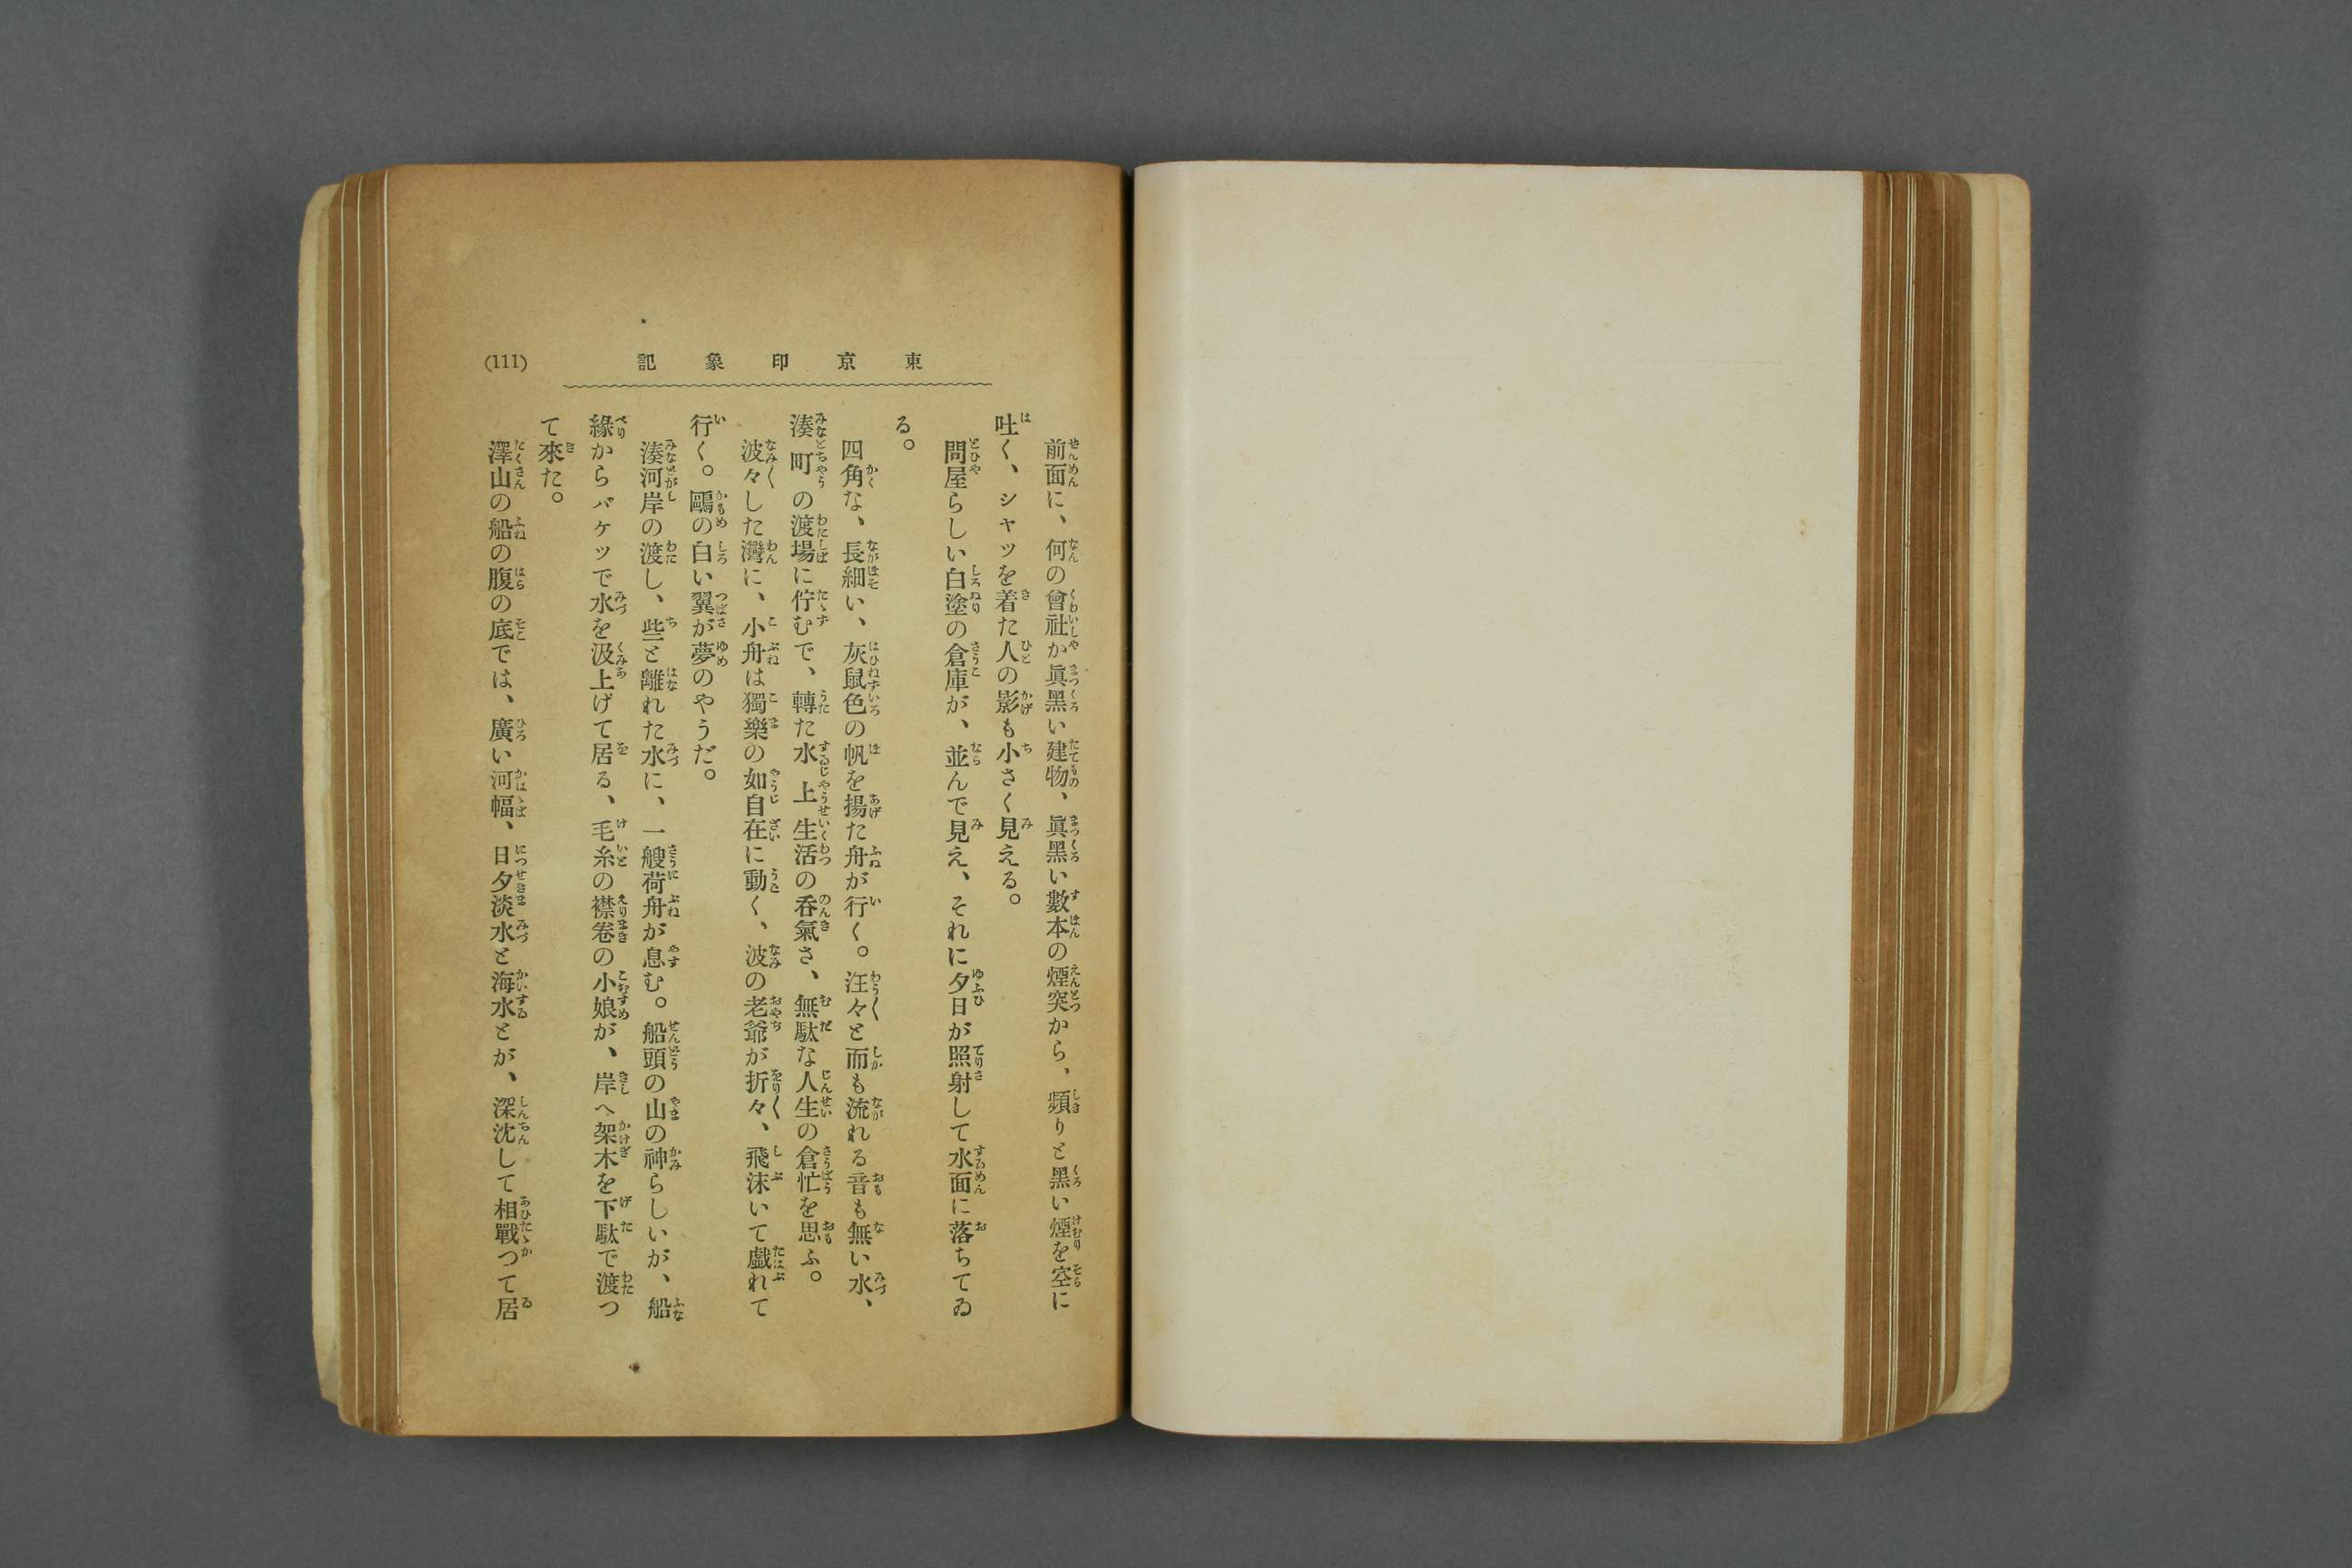 東京印象記
(111)
前面に、何の曾社か眞黑い建物、眞黑い數本の煙突から、頻りと黑い煙を空に
吐く、シャツを着た人の影も小さく見える。
問屋らしい白塗の倉庫が、並んで見え、それに夕日が照射して水面に落ちてゐ
る。
四角な、長細い、灰鼠色の帆を揚た舟が行く。汪々と而も流れる音も無い水、
湊町の渡場に佇むで、轉た水上生活の呑氣さ、無駄な人生の倉忙を思ふ。
波々した灣に、小舟は獨樂の如自在に動く、波の老爺が折々、飛沫いて戯れて
行く。鷗の白い翼が夢のやうだ。
湊河岸の渡し、些と離れた水に、一艘荷舟が息む。船頭の山の神らしいが、船
緣からバケツで水を汲上げて居る、毛糸の襟卷の小娘が、岸へ架木を下駄で渡つ
て來た。
澤山の船の腹の底では、廣い河幅、日夕淡水と海水とが、深沈して相戰つて居